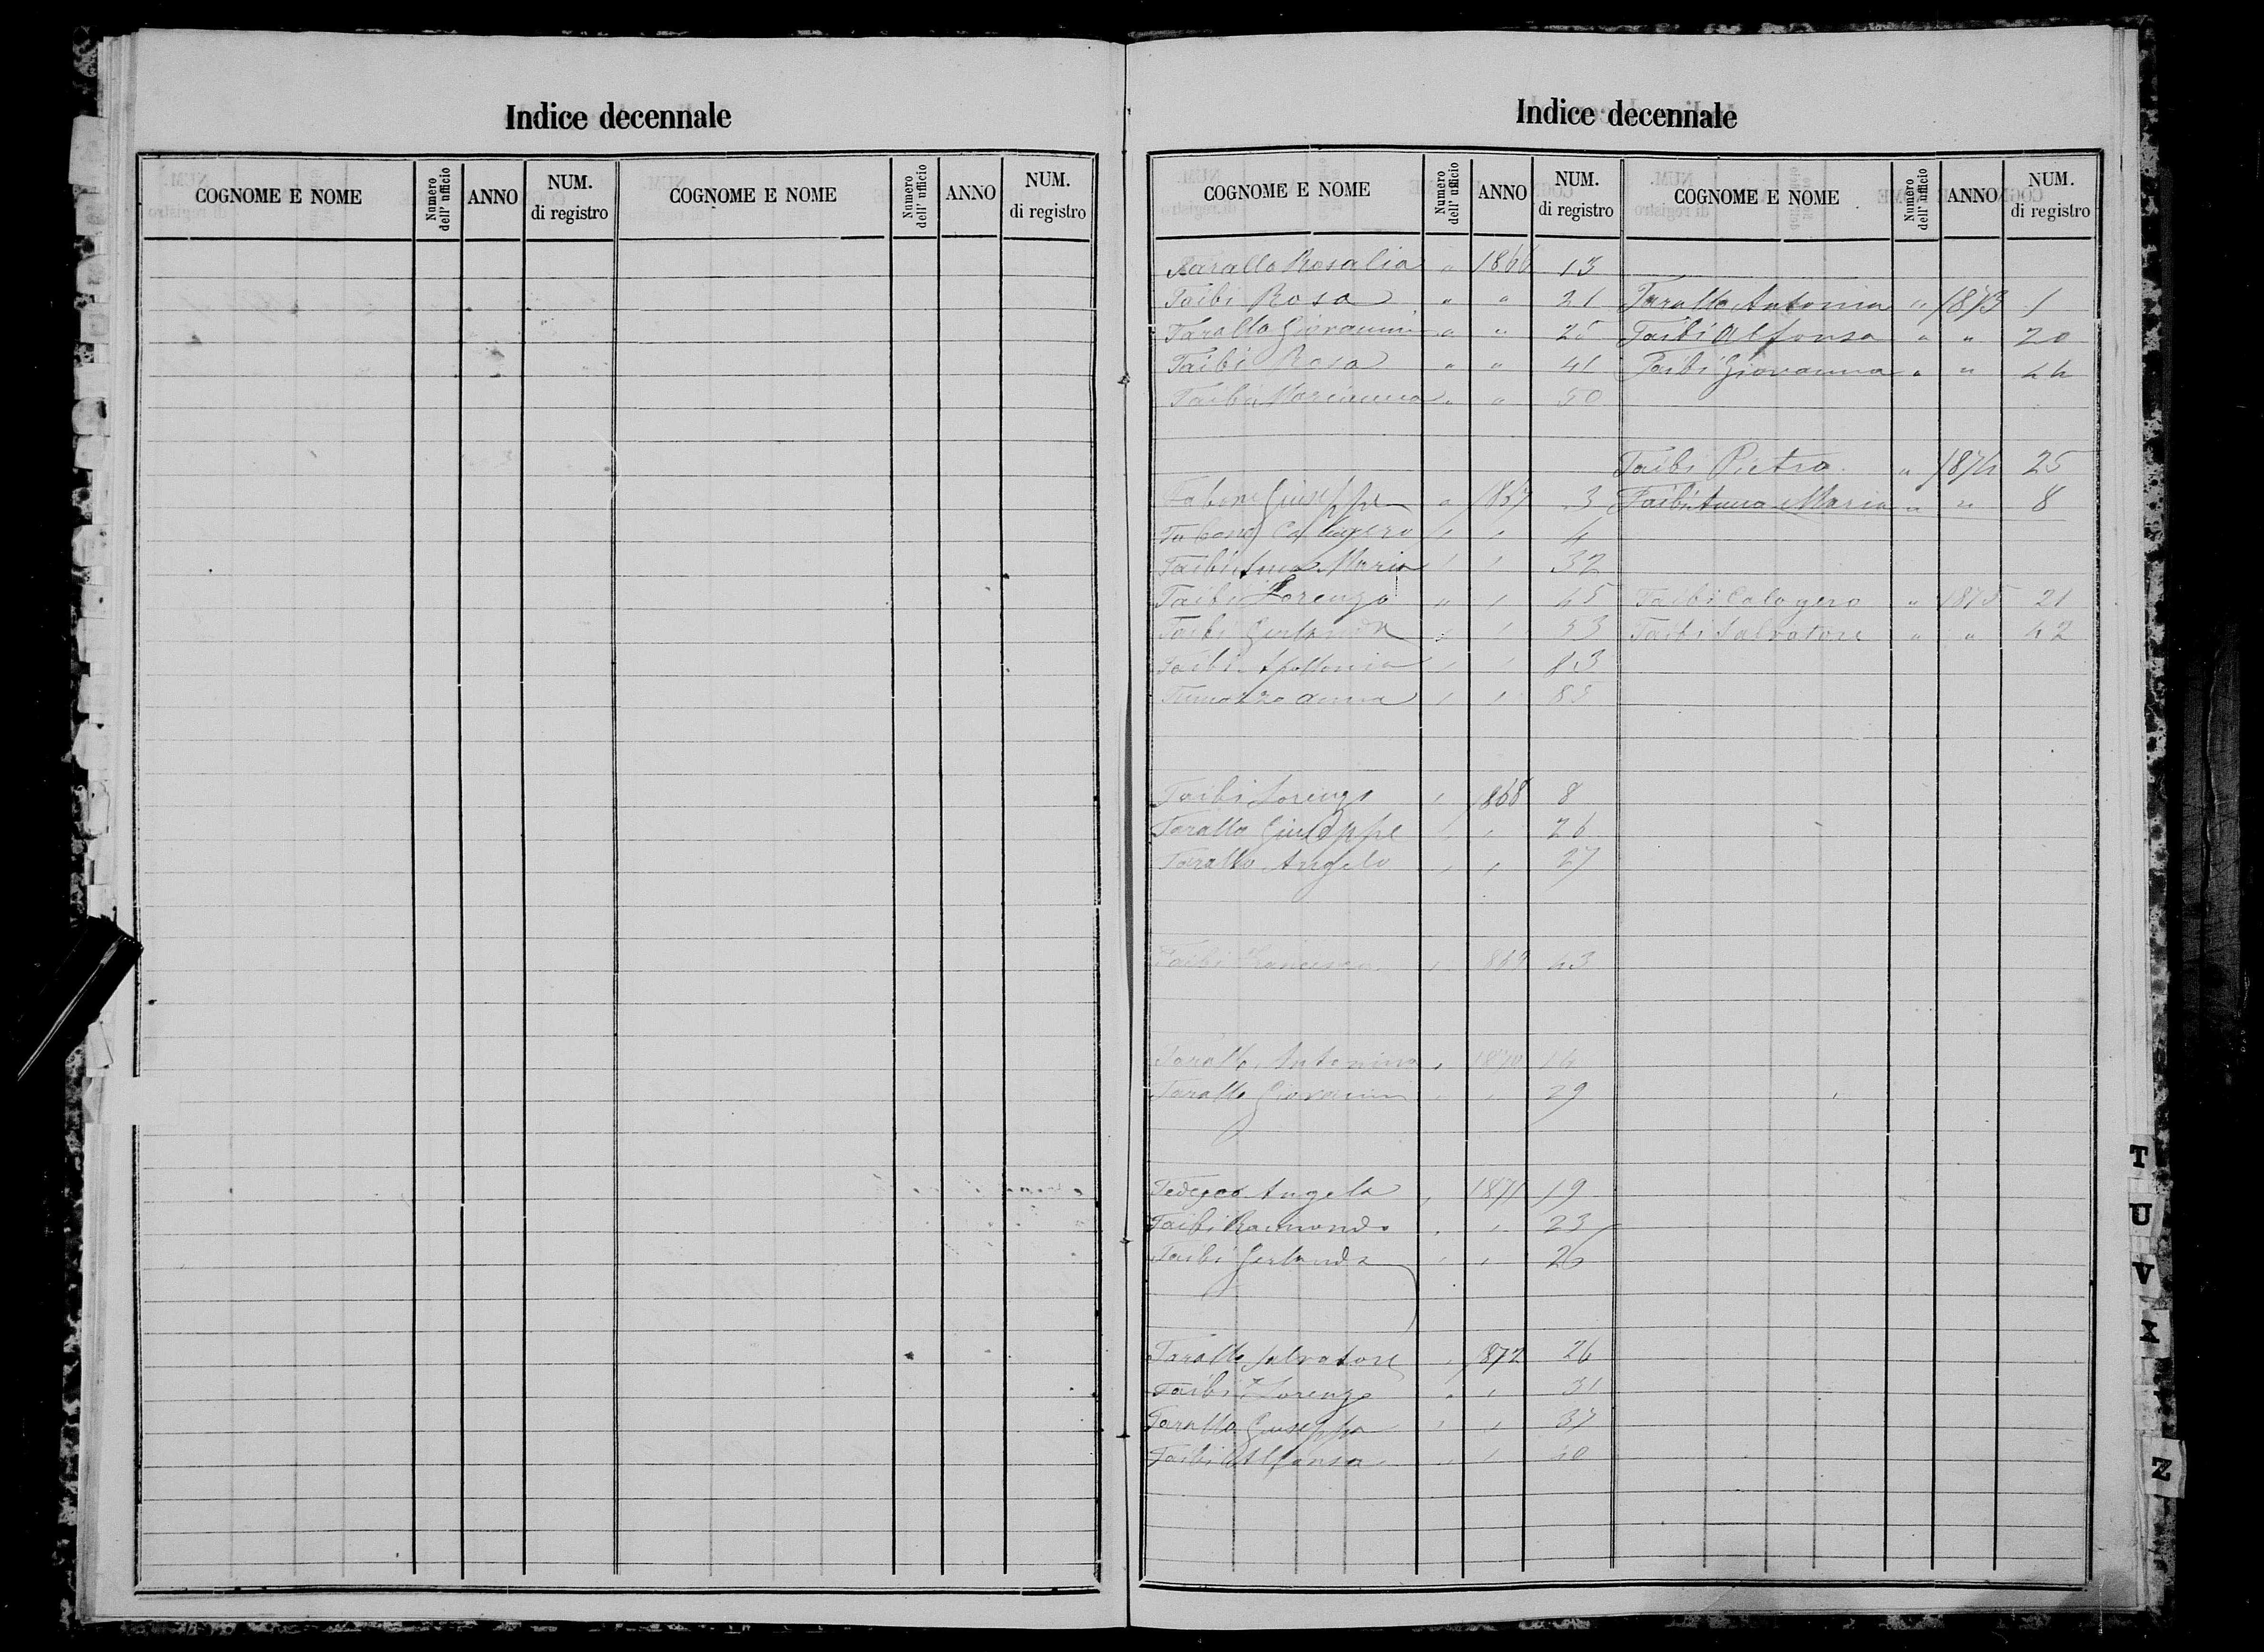 Indice decennale
COGNOME E NOME Numero dell' ufficio ANNO NUM. di registro COGNOME E NOME Numero dell' ufficio ANNO NUM. di registro
Indice decennale
COGNOME E NOME Numero dell' ufficio ANNO NUM. di registro COGNOME E NOME Numero dell' ufficio ANNO NUM. di registro
Tarallo Rosalia " 1866 13
Taibi Rosa " " 21
Tarallo Giovanni " " 25
Taibi Rosa " " 41
Taibi Marianna " " 50
Tabone Giuseppe " 1867 3
Tabone Calogero " " 4
Taibi Anna Maria " " 32
Taibi Lorenzo " " 45
Taibi Gerlanda " " 53
Taibi Apollonia " " 83
anna " " 85
Taibi Lorenzo " 1868 8
Tarallo Giuseppe " " 26
Tarallo Angelo " " 27
Taibi Francesco " 869 43
Tarallo Antonina " 1870 14
Tarallo Giovanni " " 29
Tedesco Angela " 1871 19
Taibi Raimondo " " 23
Taibi Gerlanda " " 26
Tarallo Salvatore " 1872 26
Taibi Lorenzo " " 31
Tarallo Giuseppa " " 37
Taibi Alfonsa " " 40
Tarallo Antonina " 1873 1
Taibi Alfonsa " " 20
Taibi Giovanna " " 44
Taibi Pietro " 1874 25
Taibi Anna Maria " " 8
Taibi Calogero " 1875 21
Taibi Salvatore " " 42
T
U
V
Z